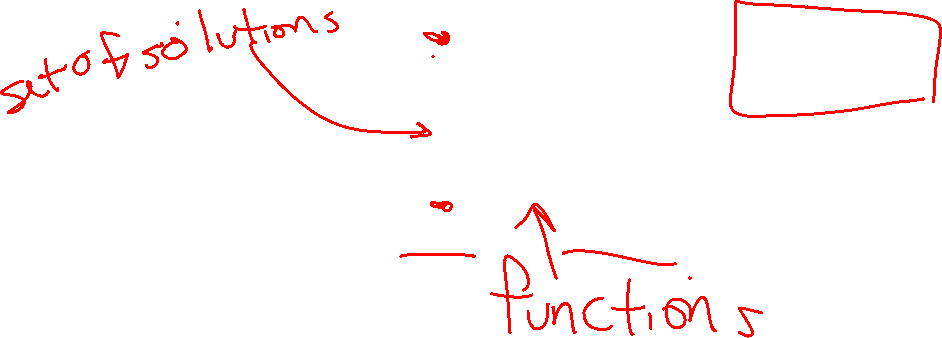 set of solutions
functions